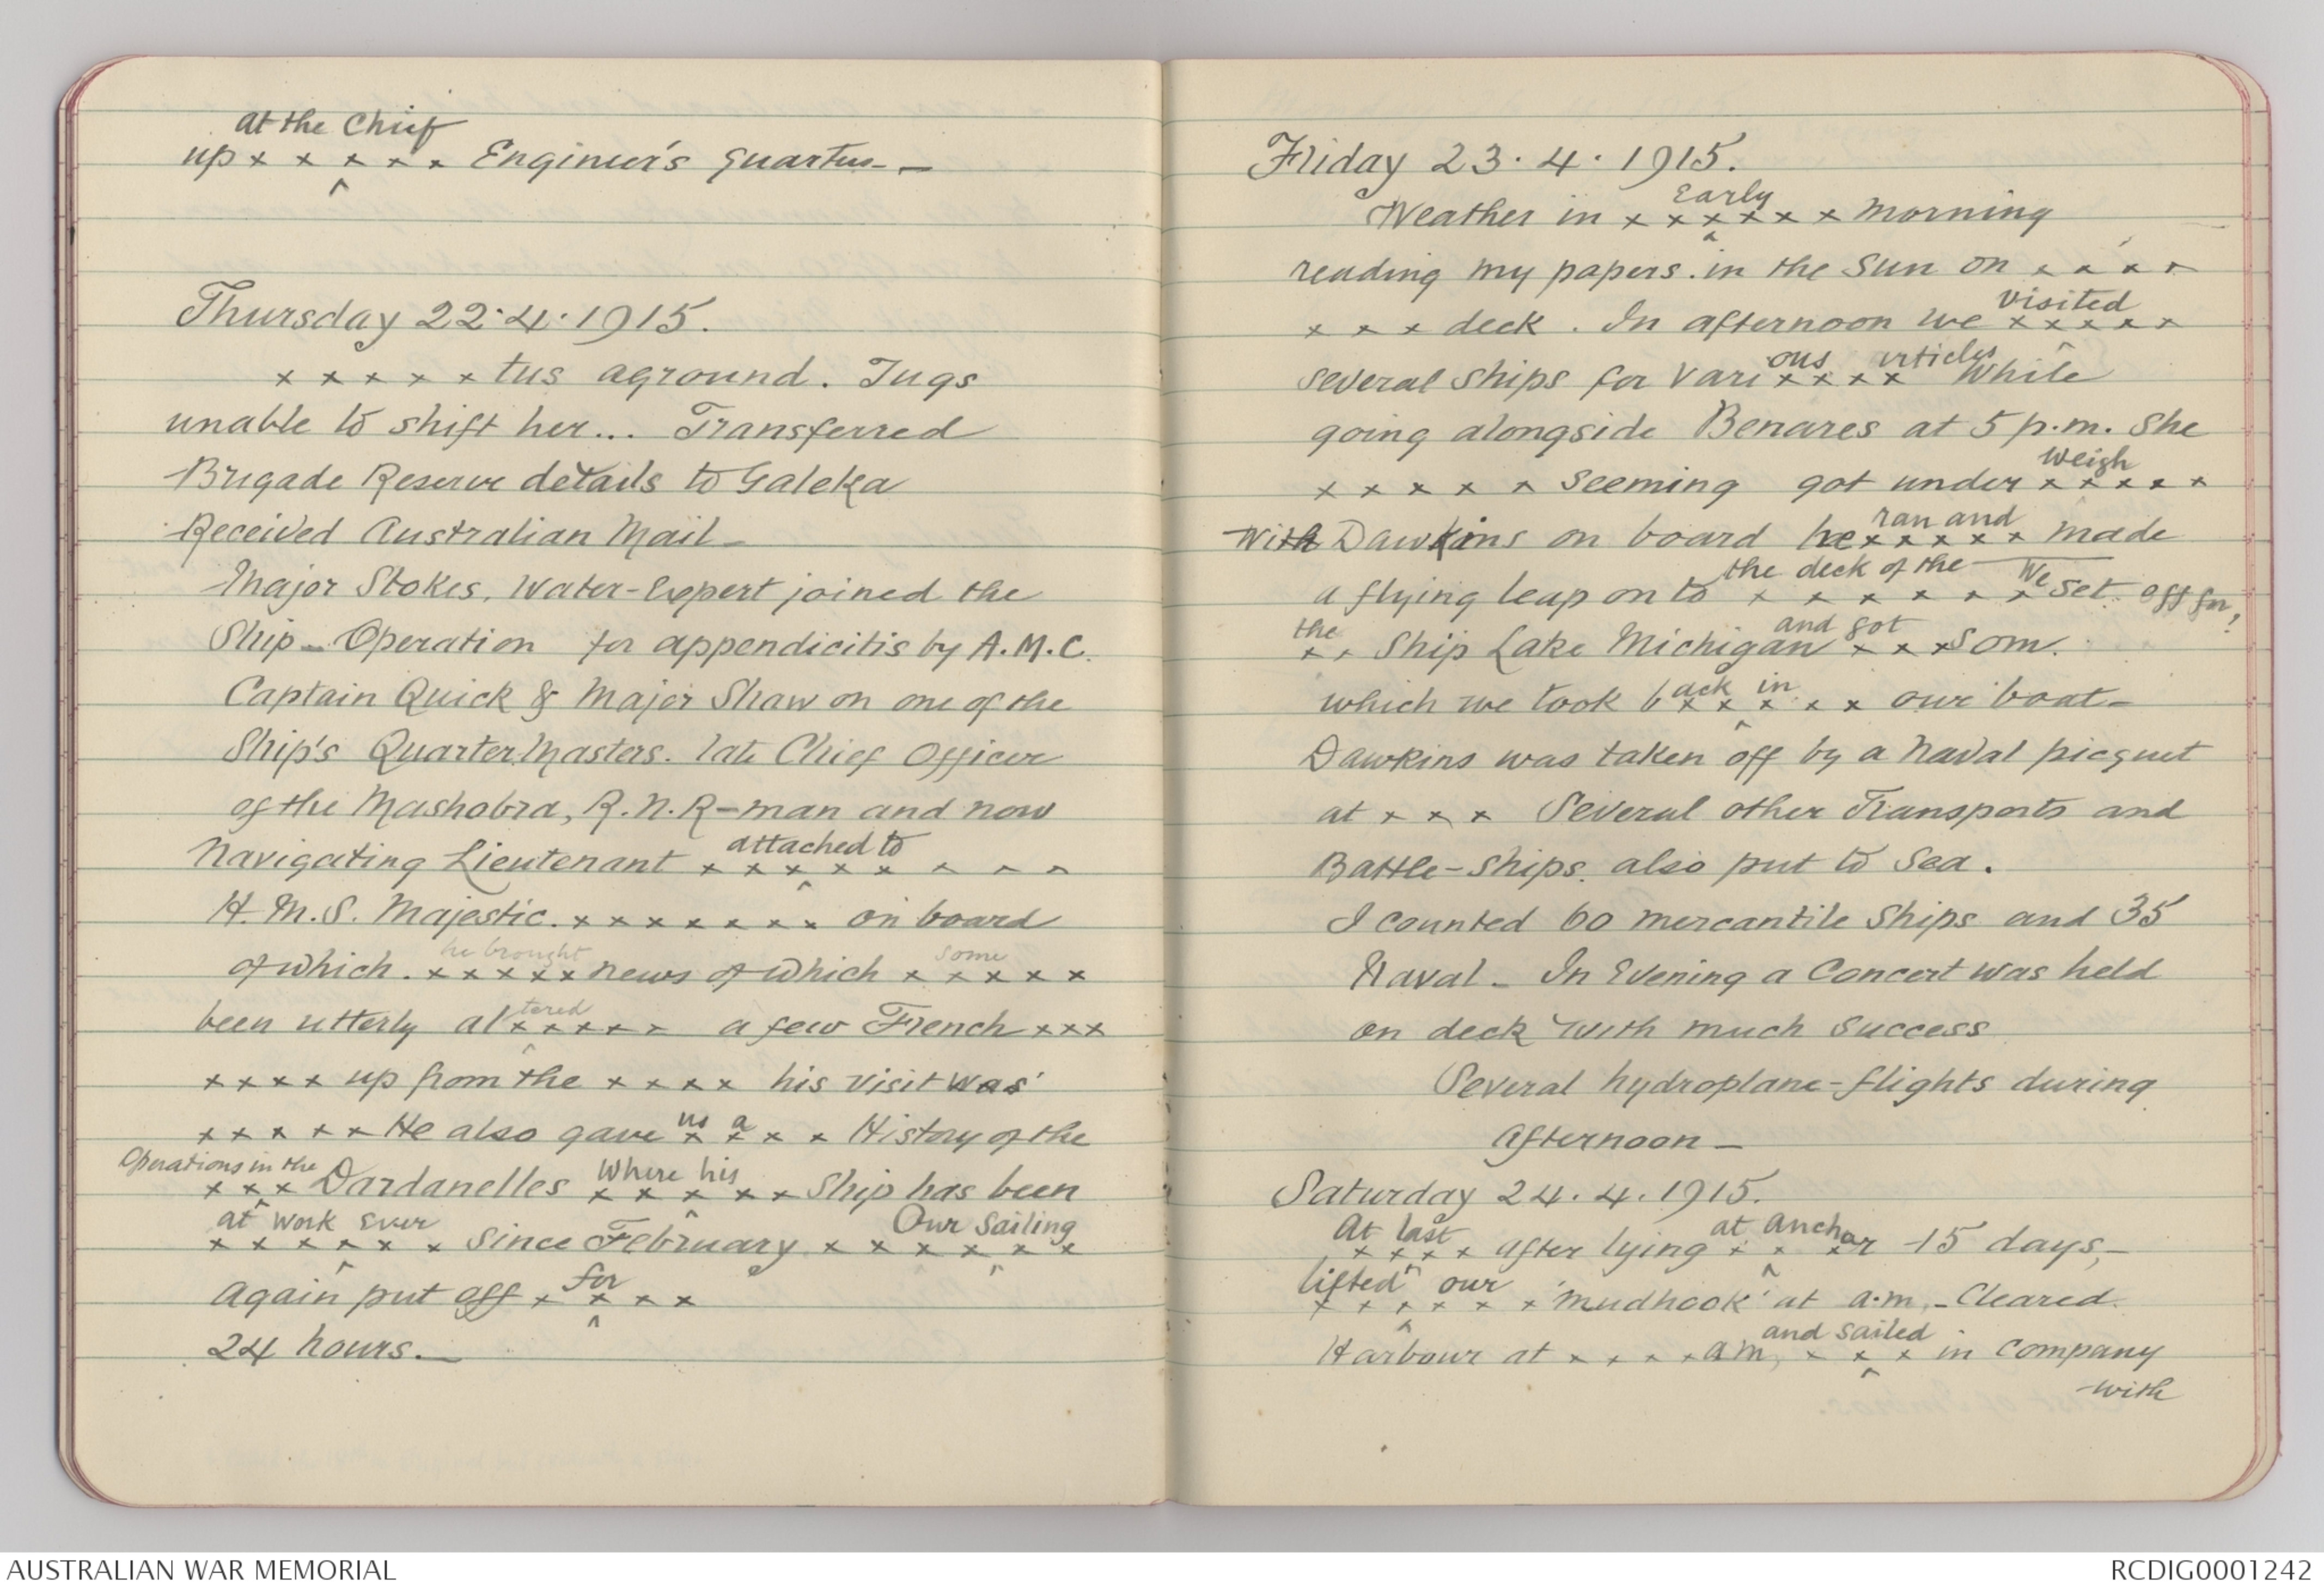 at the Chief
up x x x x x Engineer's Quarters. -
Thursday 22.4.1915.
x x x x x tus aground. Tugs
unable to shift her... Transferred
Brigade Reserve details to Galeka
Received Australian Mail -
Major Stokes, Water-Expert joined the
Ship - Operation for appendicitis by A.M.C.
Captain Quick & Major Shaw on one of the
Ship's Quarter Masters. late Chief Officer
of the Mashobra, R.N.R-man and now
attached to
Navigating Lieutenant x x x x x x x x
H.M.S. Majestic. x x x x x x x on board
he brought some
of which. x x x x x news of which x x x x x
tered
been utterly al x x x x x a few French x x x
x x x x up from the x x x x his visit was
us a
x x x x x He also gave x x x x History of the
Operations in the Where his
x x x Dardanelles x x x x x Ship has been
at work ever Our Sailing
x x x x x x since February x x x x x x
for
Again put off x x x x
24 hours. -
Friday 23.4.1915.
Early
Weather in x x x x x x morning
reading my papers. in the Sun on x x x x
visited
x x x deck. In afternoon we x x x x x
ous articles
Several Ships for Vari x x x x While
going alongside Benares at 5 p.m. She
weigh
x x x x x seeming got under x x x x x
ran and
With Dawkins on board he x x x x x made
the deck of the We
a flying leap on to x x x x x x set off for
the and got
x x Ship Lake Michigan x x x Som.
ack in
which we took b x x x x x our boat -
Dawkins was taken off by a Naval picquet
at x x x Several other Transports and
Battle-ships. also put to Sea.
I counted 60 mercantile Ships and 35
Naval - In Evening a Concert was held
on deck with much success
Several hydroplane-flights during
afternoon -
Saturday 24.4.1915.
At last at anchor
x x x x after lying x x x r 15 days, -
lifted our
x x x x x x 'mudhook' at a.m. - Cleared.
and sailed
Harbour at x x x x am, x x x in company
with
AUSTRALIAN WAR MEMORIAL
RCDIG0001242